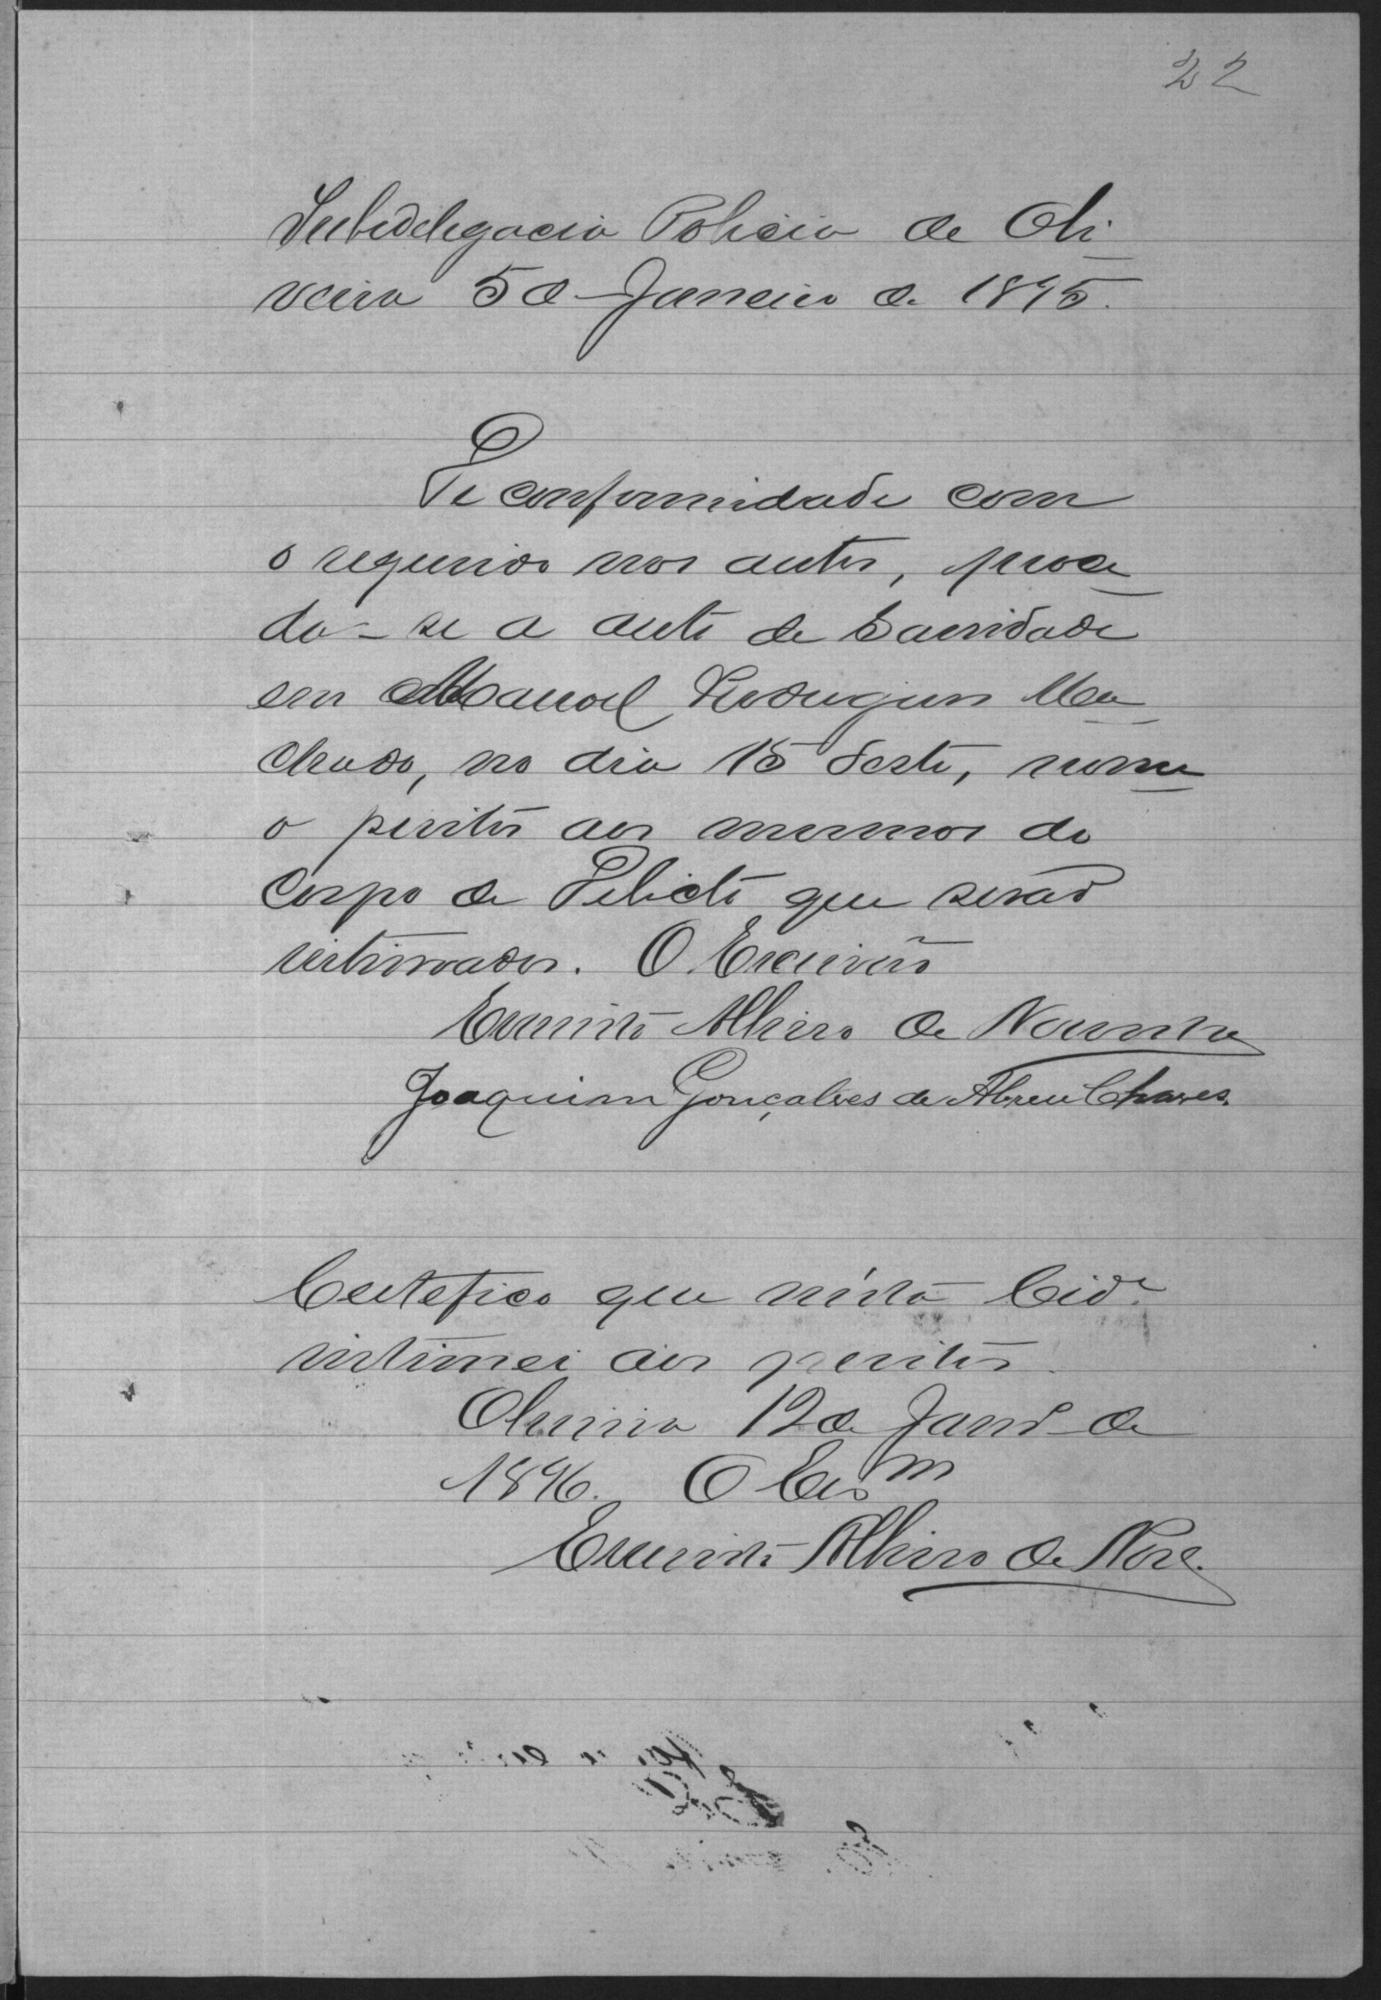 22
Subdelegacia Policia de Oli
veira 5 de Janeiro de 1895.
De conformidade com
o requerido nos autos, proce
da-se a auto de Sanidade
em Manoel Rodrigues Ma
chado, no dia 15 deste, nome
o peritos aos mesmos do
Corpo de Delicto que serão
intimados. O Escrivão
Evaristo Alhiro de
Joaquim Gonçalves de Abreu Chaves.
Certefico que nésta Cid.e
intimei aos peritos.
Oliveira 12 de Janr.o de
1896. O Escm
Evaristo Alhiro de